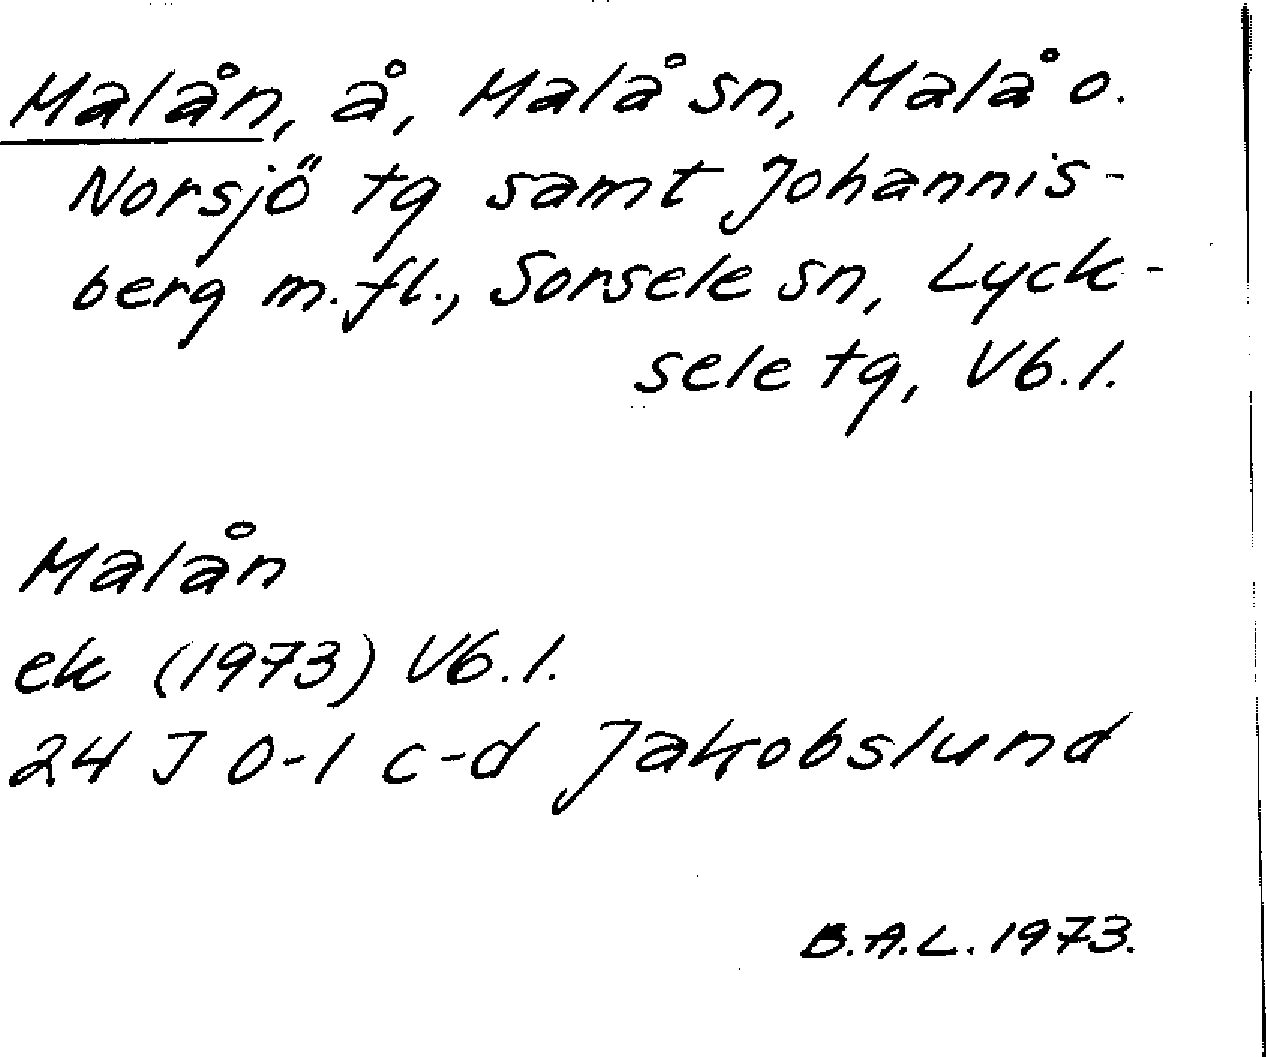 Malån, å, Malå sn, Malå o.
Norsjö tg samt Johannis-
berg m.fl., Sorsele sn, Lyck-
sele tg, Vb.l.
Malån
ek (1973) Vb.l.
24 J 0-1 c-d Jakobslund
B.A.L. 1973.